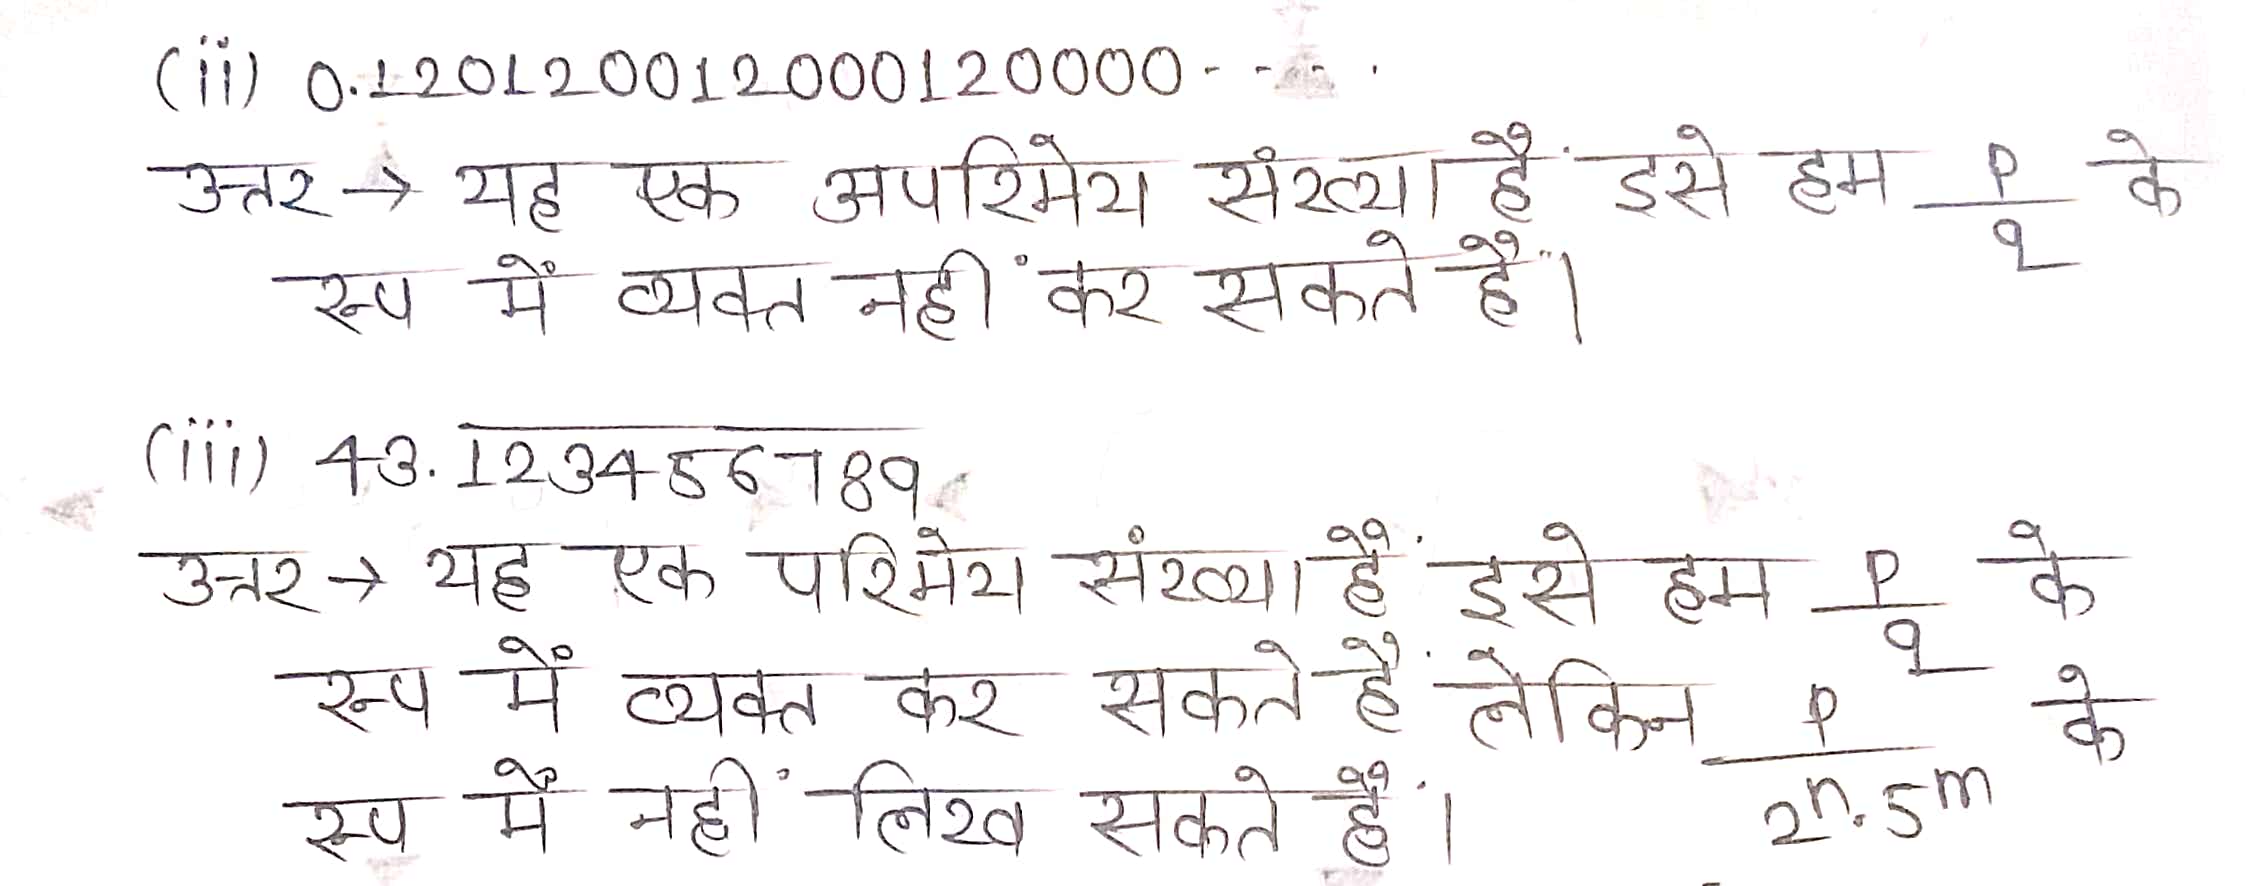 (ii) 0.120120012000120000- - - -
उत्तर → यह एक अपरिमेय संख्या है इसे हम p/q के
रूप में व्यक्त नहीं कर सकते हैं।
(iii) 43.\overline{123456789}
उत्तर → यह एक परिमेय संख्या हैं इसे हम p/q के
रूप में व्यक्त कर सकते हैं लेकिन p/2^n.5^m के
रूप में नहीं लिख सकते हैं।